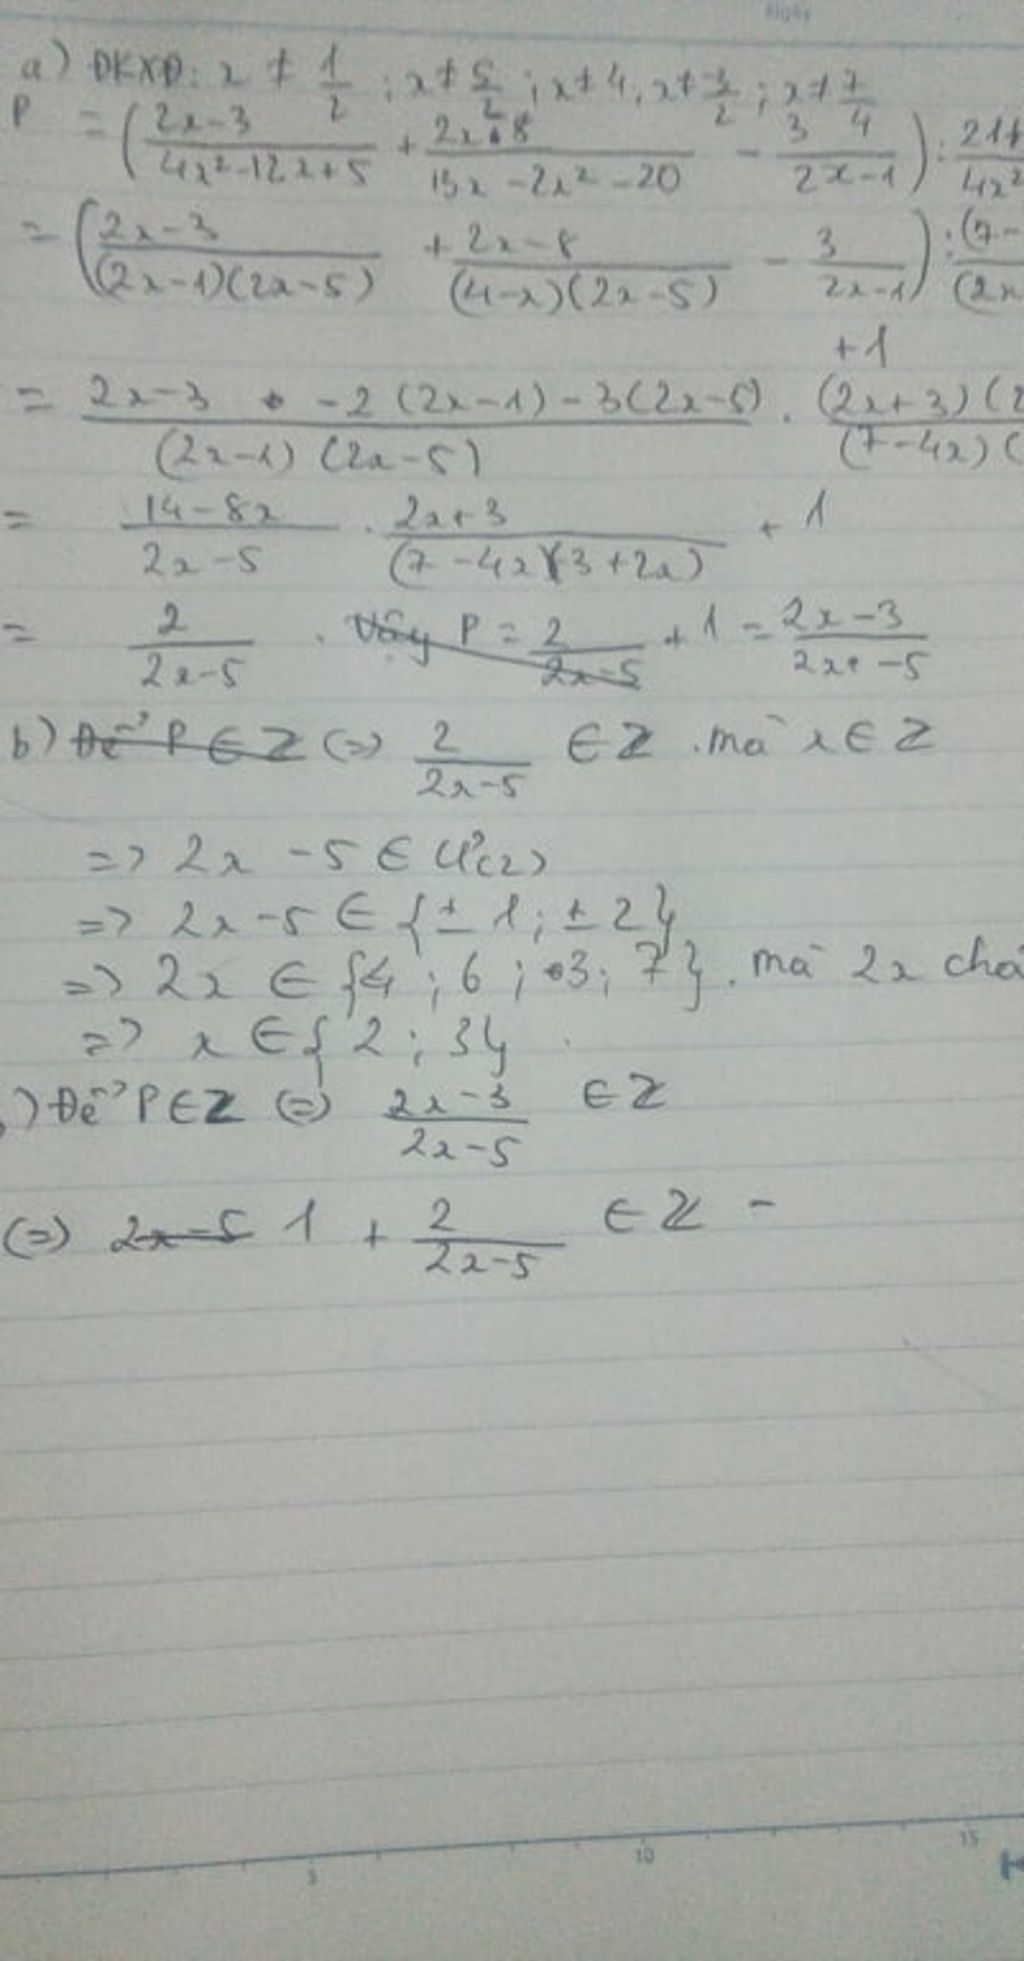 Ngày
a) ĐKXĐ: x ≠ 1/2 ; x ≠ 5/2 ; x ≠ 4, x ≠ 3/2 ; x ≠ 7/4
P = ( (2x-3)/(4x²-12x+5) + (2x-8)/(13x-2x²-20) - 3/(2x-1) ) : 21+ / 4x²
= ( (2x-3)/((2x-1)(2x-5)) + (2x-8)/((4-x)(2x-5)) - 3/(2x-1) ) : (7- / (2x
+1
= (2x-3 -2(2x-1) - 3(2x-5))/((2x-1)(2x-5)) . (2x+3)(2 / (7-4x)(
= (14-8x)/(2x-5) . (2x+3)/((7-4x)(3+2x)) + 1
= 2/(2x-5) . Vậy P = 2/(2x-5) + 1 = (2x-3)/(2x-5)
b) Để P ∈ Z (=) 2/(2x-5) ∈ Z . mà x ∈ Z
=> 2x - 5 ∈ Ư(2)
=> 2x-5 ∈ {± 1 ; ± 2}
=> 2x ∈ {4 ; 6 ; 3 ; 7} . mà 2x
=> x ∈ { 2 ; 3}
) Để P ∈ Z (=) (2x-3)/(2x-5) ∈ Z
(=) 2x-5 1 + 2/(2x-5) ∈ Z -
5 10 15